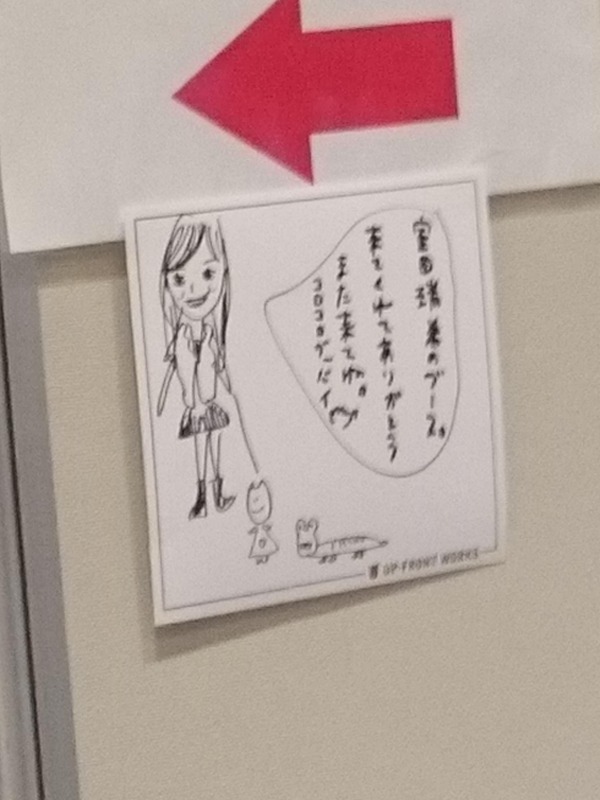 室田瑞希のブース。
来てくれてありがとう
また来てね。
コロコロ
UP-FRONT WORKS